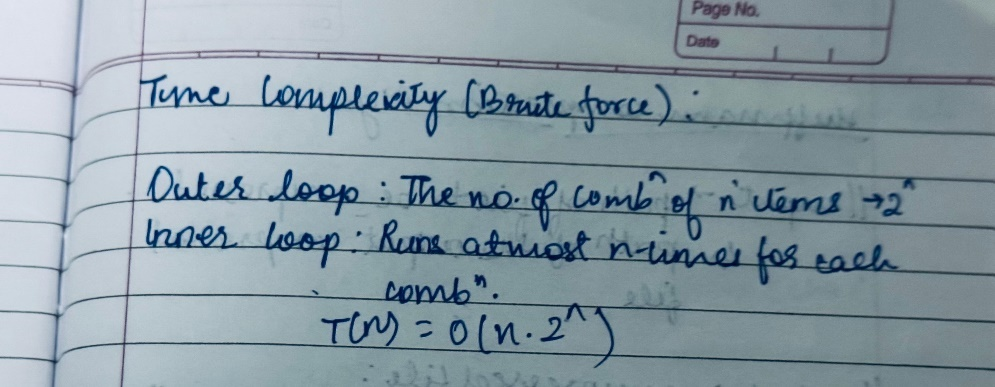 Page No.
Date
Time Complexity (Brute force) :
Outer loop : The no. of combⁿ of n items → 2ⁿ
Inner loop : Runs atmost n-times for each
combⁿ.
T(N) = O(n · 2ⁿ)